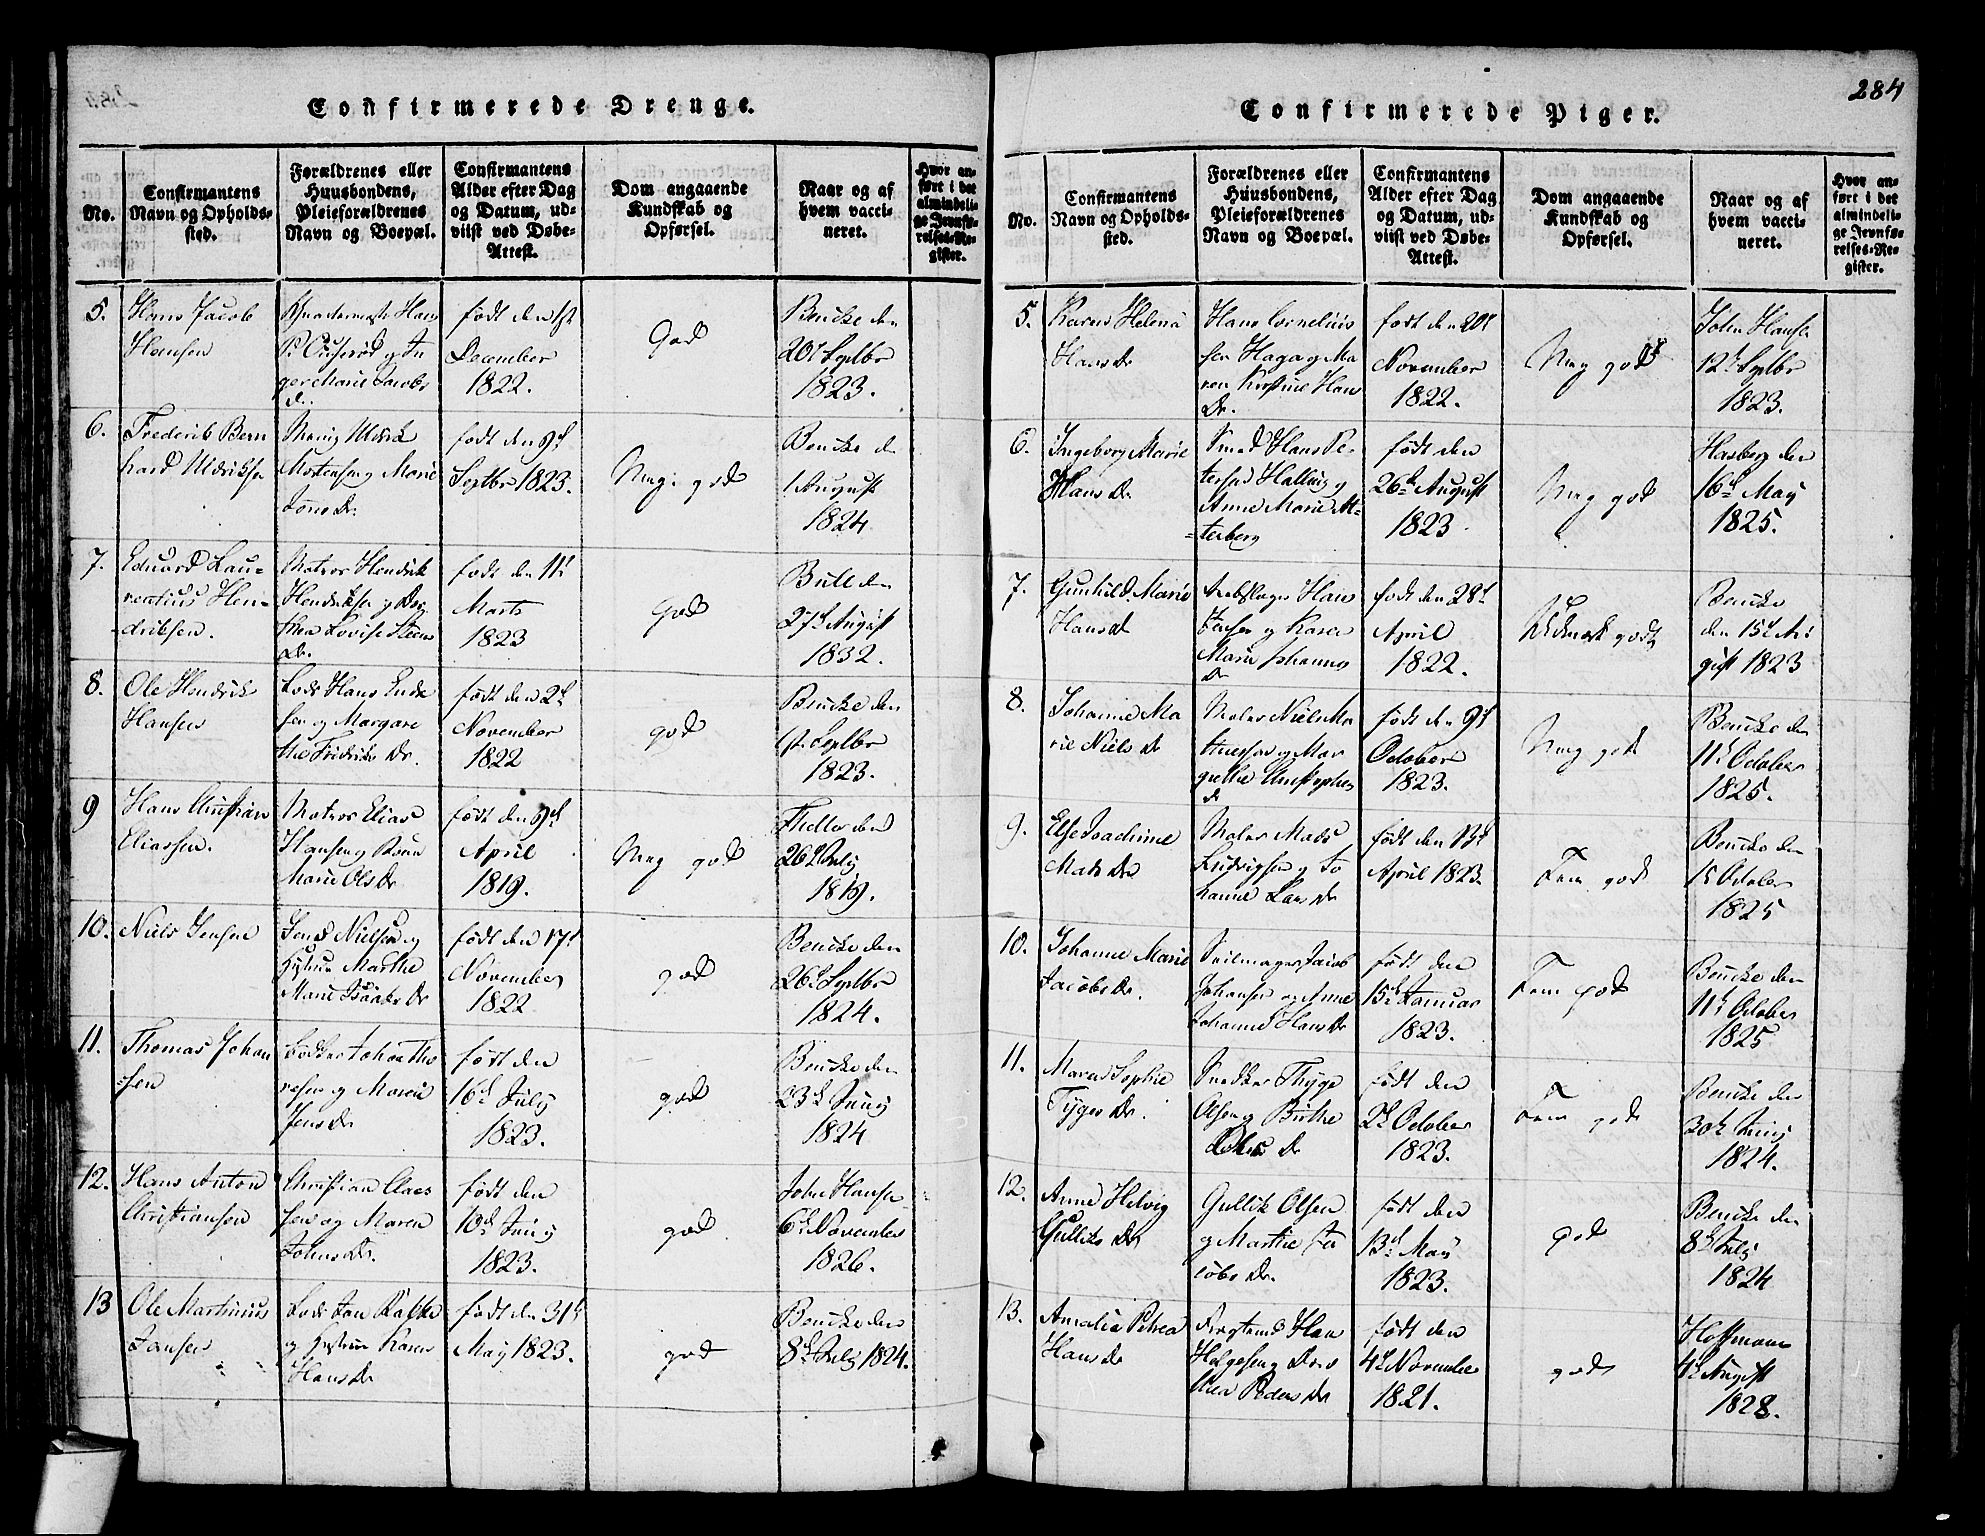 284
Confirmerede Drenge.
No.
Confirmantens
Navn og Opholds-
sted.
Forældrenes eller
Huusbondens,
Pleieforældrenes
Navn og Boepæl.
Confirmantens
Alder efter Dag
og Datum, ud-
viist ved Døbe-
Attest.
Dom angaaende
Kundskab og
Opførsel.
Naar og af
hvem vacci-
neret.
Hvor an-
ført i det
almindeli-
ge Jevnfø-
relses-Re-
gister.
5.
Hans Jacob
Hansen
Hans
Marie Jacobs
D.
født den 1st
December
1822.
God
Bencke den
20d Septbr
1823.
6.
Frederik Bern
hard Uldriksen
Uldrik
Mortensen og Marie
Dr.
født den 9d
Septbr 1823.
Meg. god
Bencke d
1 August
1824
7.
Eduard Lau-
rentius Hen-
driksen.
Matros Hendrik
Hendriksen og Doro
thea Lovise Steens
Dr.
født den 11t
Marts
1823
God
Bull den
27d August
1832.
8.
Ole Hendrik
Hansen
Lods Hans
sen og Margare
the Fredriks Dr.
født den 2d
November
1822
god
Bencke den
1st Septbr
1823.
9
Hans Christian
Eliassen.
Matros Elias
Hansen og
Marie Ols Dr
født den 9d
April
1819.
Meg god
Fidler den
26d July
1819.
10.
Niels Jensen
Jens Nielsen og
Hustrue Marthe
Marie Isaaks Dr
født den 17d
November
1822
god
Bencke den
26d Septbr
1824.
11.
Thomas Johan
sen
Johan Tho
resen og Maren
Jens Dr
født den
16d July
1823.
god
Bencke den
23d Juny
1824
12.
Hans Anton
Christiansen
Christian Claes
sen og Maren
Johns Dr.
født den
10d Juny
1823.
god
John Hansen
6d November
1826.
13
Ole Martinius
Jansen
Lods Jan
og Hustrue Karen
Hans Dr
født den 31d
May 1823.
god
Bencke den
8d July 1824.
Confirmerede Piger.
No.
Confirmantens
Navn og Opholds-
sted.
Forældrenes eller
Huusbondens,
Pleieforældrenes
Navn og Boepæl.
Confirmantens
Alder efter Dag
og Datum, ud-
viist ved Døbe-
Attest.
Dom angaaende
Kundskab og
Opførsel.
Naar og af
hvem vacci-
neret.
Hvor an-
ført i det
almindeli-
ge Jevnfø-
relses-Re-
gister.
5.
Karen Helena
Hans Dr
Hans Cornelius
sen Haga og Ma
ren Kirstine Hans
Dr.
født den 20d
November
1822.
Meg god
John Hansen
12d Septbr
1823.
6.
Ingeborg Marie
Hans Dr
Smed Hans Pe-
tersen Halling og
Anne Marie
født den
26d August
1823
Meg god
Hasberg den
16d May
1825.
7.
Gunhild Marie
Hans d
Hans
Jensen og Karen
Marie Johannes
D
født den 28d
April
1822.
Udmærket godt
Bencke
den 15d Au
gust 1823
8.
Johanne Ma
rie Niels Dr
Maler Niels Ma
thiessen og Mar
grethe Christophers
d
født den 9d
October
1823.
Meg god
Bencke den
11d October
1825.
9.
Else Joachime
Mads Dr
Maler Mads
Ludvigsen og Jo
hanne Lars Dr
født den 13d
April 1823.
Fem god
Bencke den
15 October
1825
10.
Johanne Marie
Jacobs Dr.
Seilmager Jacob
Johansen og Anne
Johanne Hans Dr
født den
15d Januar
1823.
Fem god
Bencke den
11d October
1825
11.
Maren Sophie
Tyges Dr.
Snedker Thyge
Olsen og Birthe
Dr
født den
2d October
1823.
Fem god
Bencke den
30d Juny
1824.
12.
Anne Helvig
Gulliks Dr
Gullik Olsen
og Marthe Ja
cobs Dr.
født den
13d May
1823.
god
Bencke den
8d July
1824
13.
Amalia Petrea
Hans Dr
Hans
Holgesen og Doro
thea Peders Dr
født den
4d November
1821.
god
Hoffmann
4d August
1828.